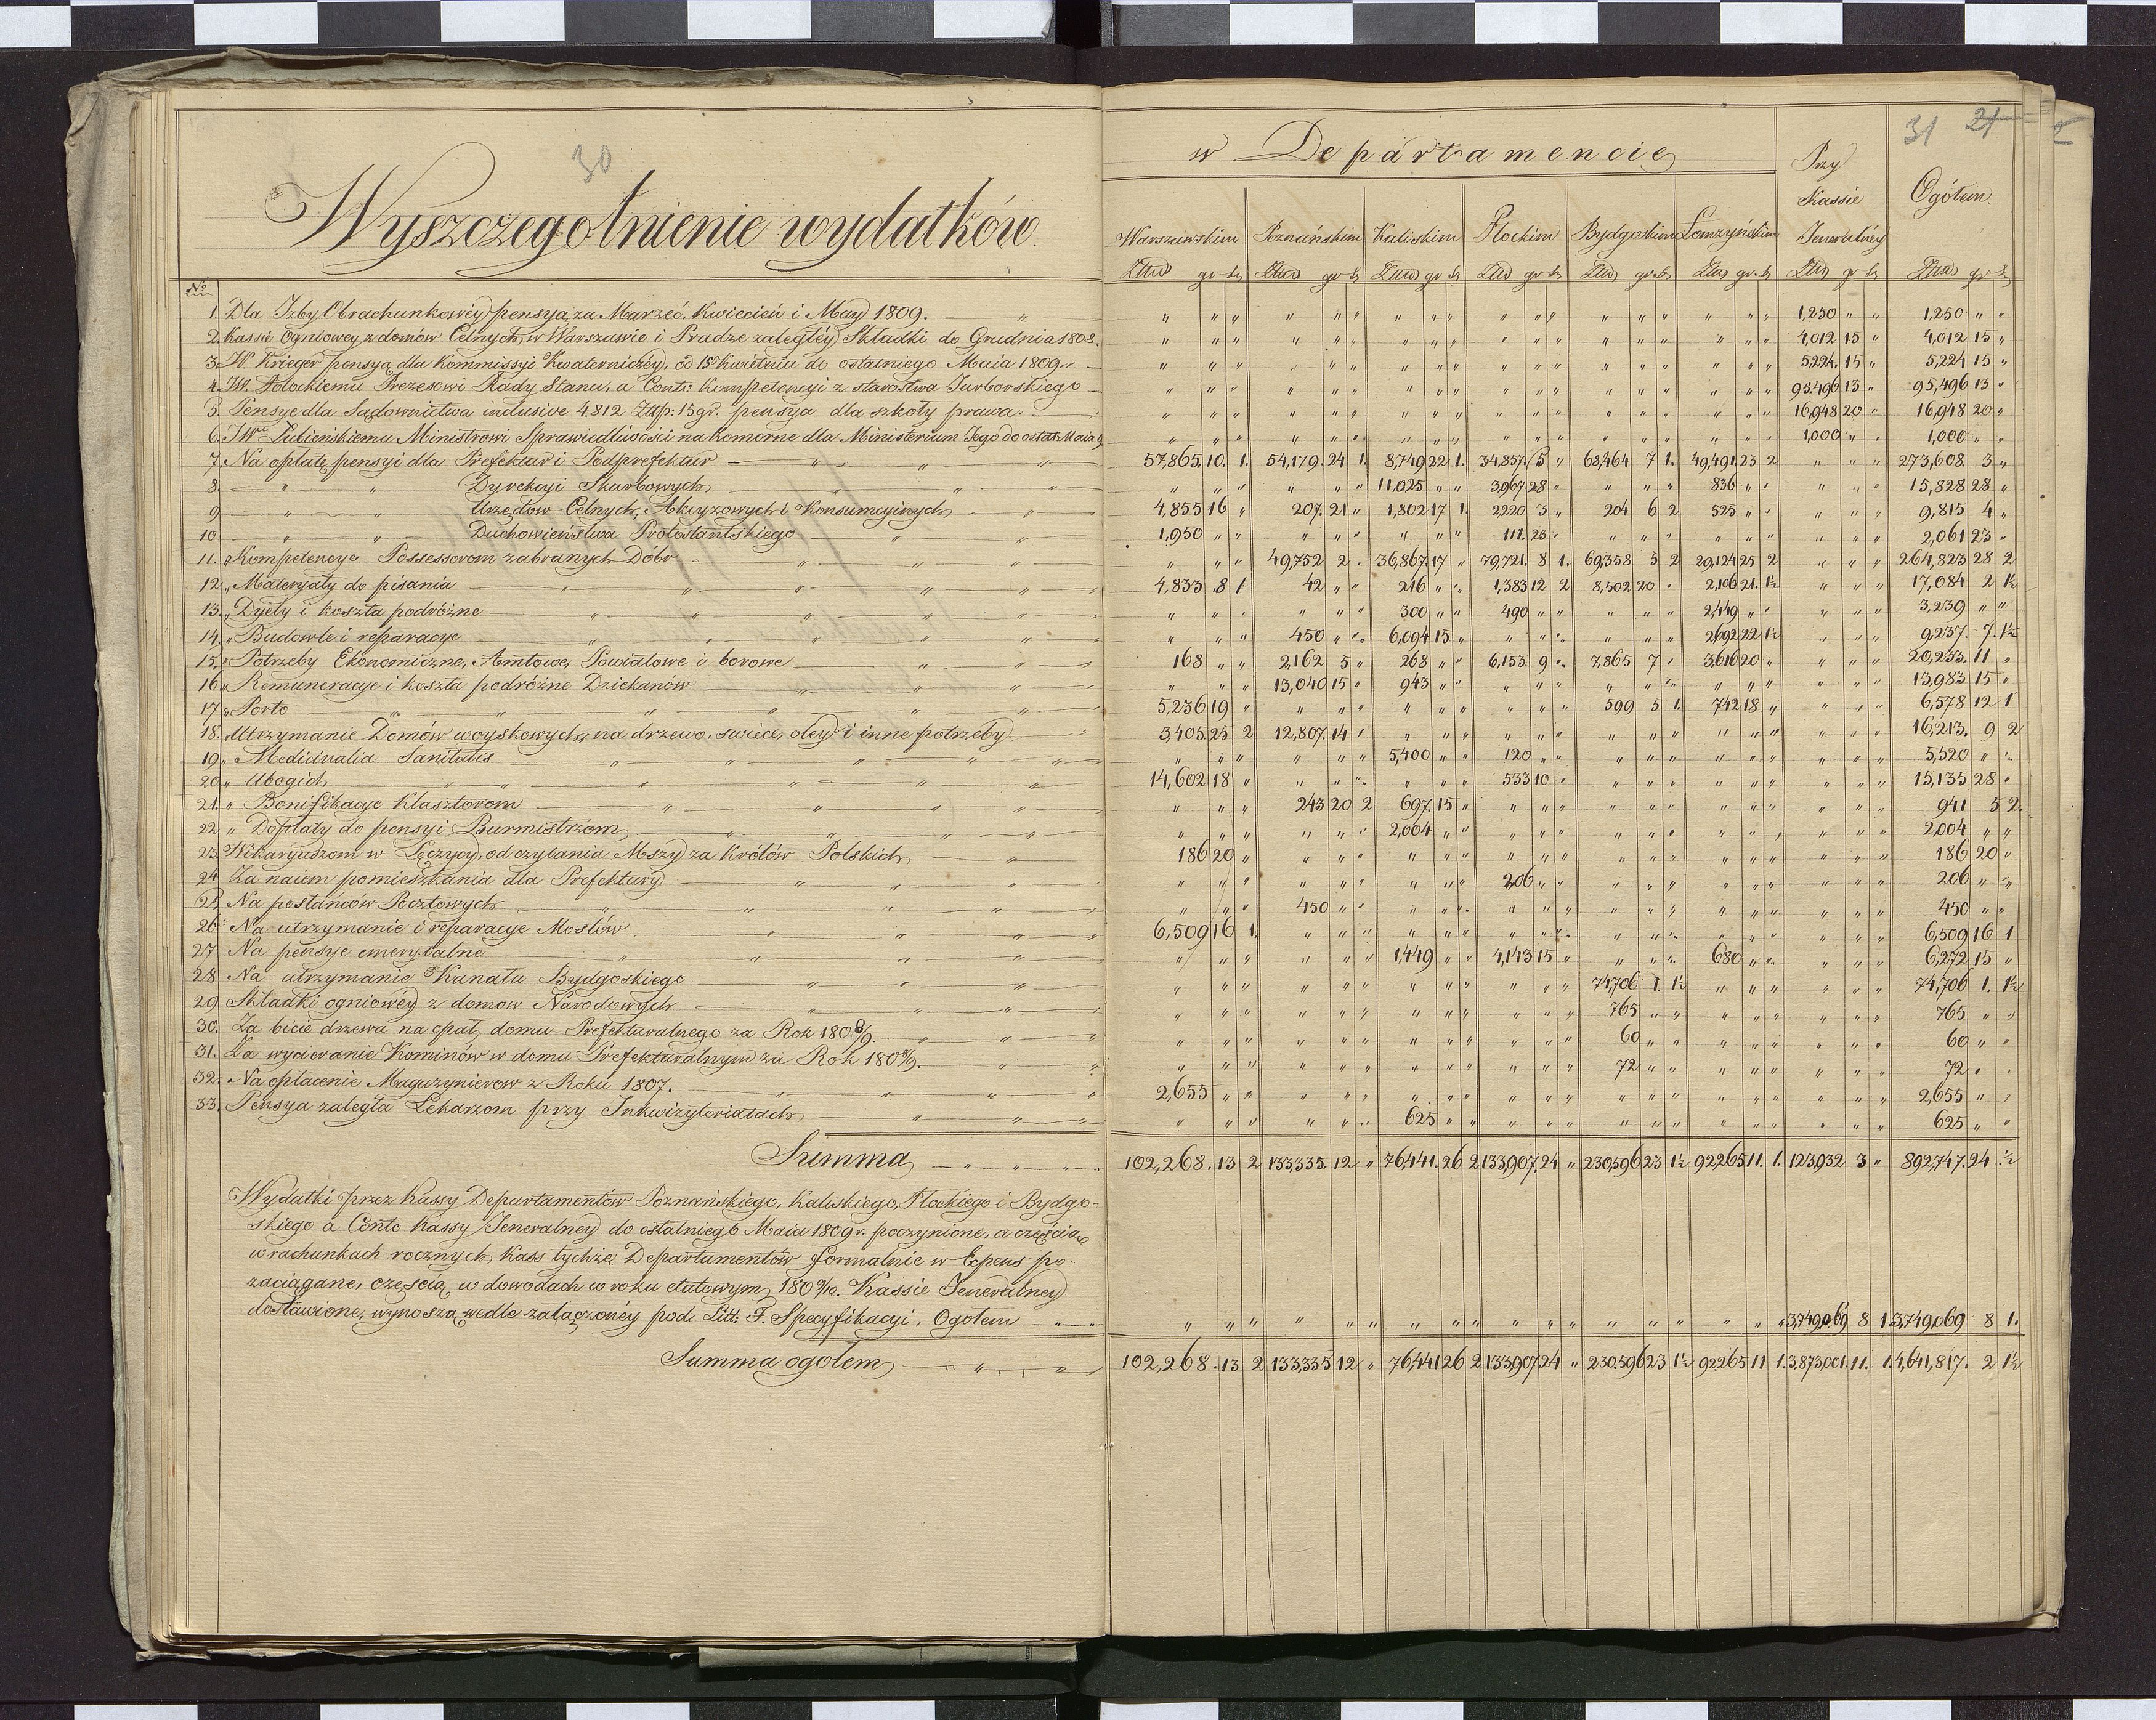 30
Wyszczegolnienie wydatków.
No
1. Dla Izby Obrachunkowéy pensya za Marzec, Kwiecień i May 1809. "
2. Kassie Ogniowey z domów Celnych w Warszawie i Pradze zaległéy Składki do Grudnia 1808.
3. W. Krieger pensya dla Kommissyi Kwaterniczéy, od 15 Kwietnia do ostatniego Maia 1809.
4. JW. Potockiemu Prezesowi Rady Stanu, a Conto Kompetencyi z starostwa Jurborskiego
5. Pensye dla Sądownictwa inclusive 4812 Złłp: 15 gr. pensya dla szkoły prawa.
6. JWe Lubieńskiemu Ministrowi Sprawiedliwości na Komorne dla Ministerium Jego do ostat. Maia 9
7. Na opłatę pensyi dla Prefektur i Podprefektur " " "
8. " " Dyrekcyi Skarbowych " " "
9 " " Urzędow Celnych, Akcyzowych i Konsumcyinych " "
10 " " Duchowieństwa Protestantskiego " " "
11. " Kompetencye Possessorom zabranych Dóbr " " "
12. " Materyały do pisania " " " " "
13. " Dyety i koszta podróżne " " " " "
14. " Budowle i reparacye " " " " "
15. " Potrzeby Ekonomiczne, Amtowe, Powiatowe i borowe " "
16. " Remuneracye i koszta podróżne Dziekanów " " "
17. " Porto " " " " " "
18. Utrzymanie Domów woyskowych, na drzewo, swiece, oley i inne potrzeby "
19. " Medicinalia Sanitatis " " " " "
20. " Ubogich " " " " " "
21. " Bonifikacye Klasztorom " " " "
22 " Dopłaty do pensyi Burmistrzom " " " "
23. Wikaryuszom w Łęczycy, od czytania Mszy za Królów Polskich "
24 Za naiem pomieszkania dla Prefektury " " "
25 Na posłańców Pocztowych " " " "
26 Na utrzymanie i reparacye Mostów " " "
27 Na pensye emerytalne " " " "
28 Na utrzymanie Kanału Bydgoskiego " " "
29 Składki ogniowéy z domow Narodowych " " "
30. Za bicie drzewa na opał, domu Prefekturalnego za Rok 1808/9. " " "
31. Za wycieranie Kominów w domu Prefekturalnym za Rok 1808/9. " "
32. Na opłacenie Magazynierow z Roku 1807. " " " "
33. Pensya zaległa Lekarzom przy Inkwizytoriatach " " "
Summa " " "
Wydatki przez Kassy Departamentów Poznańskiego, Kaliskiego, Płockiego i Bydgo-
skiego a Conto Kassy Jeneralney do ostatniego Maia 1809 r. poczynione, a częścią
w rachunkach rocznych, Kass tychże Departamentów formalnie w Expens po-
zaciągane, częścią w dowodach w roku etatowym 1809/10. Kassie Jeneralney
dostawione, wynoszą wedle załączonéy pod Litt: F. Specyfikacyi, Ogołem " "
Summa ogołem " "
31 21
w Departamencie
Przy Kassie Jeneralnéy
Ogółem.
Warszawskim Poznańskim Kaliskim Płockim Bydgoskim Łomżyńskim
Złłd gr sz Złłd gr sz Złłd gr sz Złłd gr sz Złłd gr sz Złłd gr sz Złłd gr sz Złłd gr sz
" " " " " " " " " " " " " " " " " " 1,250 " " 1,250 " "
" " " " " " " " " " " " " " " " " " 4,012 15 " 4,012 15 "
" " " " " " " " " " " " " " " " " " 5,224 15 " 5,224 15 "
" " " " " " " " " " " " " " " " " " 95,496 13 " 95,496 13 "
" " " " " " " " " " " " " " " " " " 16,948 20 " 16,948 20 "
" " " " " " " " " " " " " " " " " " 1,000 " " 1,000 " "
57,865. 10. 1. 54,179. 24 1. 8,749 22 1. 34,857. 15 " 68,464 7 1. 49,491. 23 2 " " " 273,608. 3 "
" " " " " " 11,025 " " 3,967 28 " " " " 836 " " " " " 15,828 28 "
4,855 16 " 207. 21 " 1,802 17 1. 2220 3 " 204 6 2 525 " " " " " 9,815 4 "
1,950 " " " " " " " " 111. 23 " " " " " " " " " " 2,061 23 "
" " " 49,752 2 " 36,867. 17 " 79,721. 8 1. 69,358 5 2 29,124 25 2 " " " 264,823 28 2
4,833 8 1 42 " " 216 " " 1,383 12 2 8,502 20 " 2,106 21. 1½ " " " 17,084 2 1½
" " " " " " 300 " " 490 " " " " " 2,449 " " " " " 3,239 " "
" " " 450 " " 6,094 15 " " " " " " " 2692 22 1½ " " " 9,237. 7. 1½
168 " " 2,162 5 " 268 " " 6,153 9 " 7,865 7 " 3,616 20 " " " " 20,233. 11 "
" " " 13,040 15 " 943 " " " " " " " " " " " " " " 13,983 15 "
5,236 19 " " " " " " " " " " 599 5 1. 742 18 " " " " 6,578 12 1
3,405. 25 2 12,807. 14 " " " " " " " " " " " " " " " " 16,213. 9 2
" " " " " " 5,400 " " 120 " " " " " " " " " " " 5,520 " "
14,602 18 " " " " " " " 533 10 " " " " " " " " " " 15,135 28 "
" " " 243 20 2 697. 15 " " " " " " " " " " " " " 941 5 2.
" " " " " " 2,004 " " " " " " " " " " " " " " 2,004 " "
186 20 " " " " " " " " " " " " " " " " " " " 186 20 "
" " " " " " " " " 206 " " " " " " " " " " " 206 " "
" " " 450 " " " " " " " " " " " " " " " " " 450 " "
6,509 16 1. " " " " " " " " " " " " " " " " " " 6,509 16 1
" " " " " " 1,449 " " 4,143 15 " " " " 680 " " " " " 6,272 15 "
" " " " " " " " " " " " 74,706 1. 1½ " " " " " " 74,706 1. 1½
" " " " " " " " " " " " 765 " " " " " " " " 765 " "
" " " " " " " " " " " " 60 " " " " " " " " 60 " "
" " " " " " " " " " " " 72 " " " " " " " " 72 " "
2,655 " " " " " " " " " " " " " " " " " " " " 2,655 " "
" " " " " " 625 " " " " " " " " " " " " " " 625 " "
102,268. 13 2 133,335. 12 " 76,441. 26 2 133,907 24 " 230,596 23 1½ 92265 11. 1. 123,932 3 " 892,747. 24 ½
" " " " " " " " " " " " " " " " " " 3,749,069 8 1. 3,749,069 8 1.
102,268. 13 2 133,335 12 " 76,441 26 2 133,907 24 " 230,596 23 1½ 92265 11 1. 3,873,001. 11. 1. 4,641,817. 2 1½